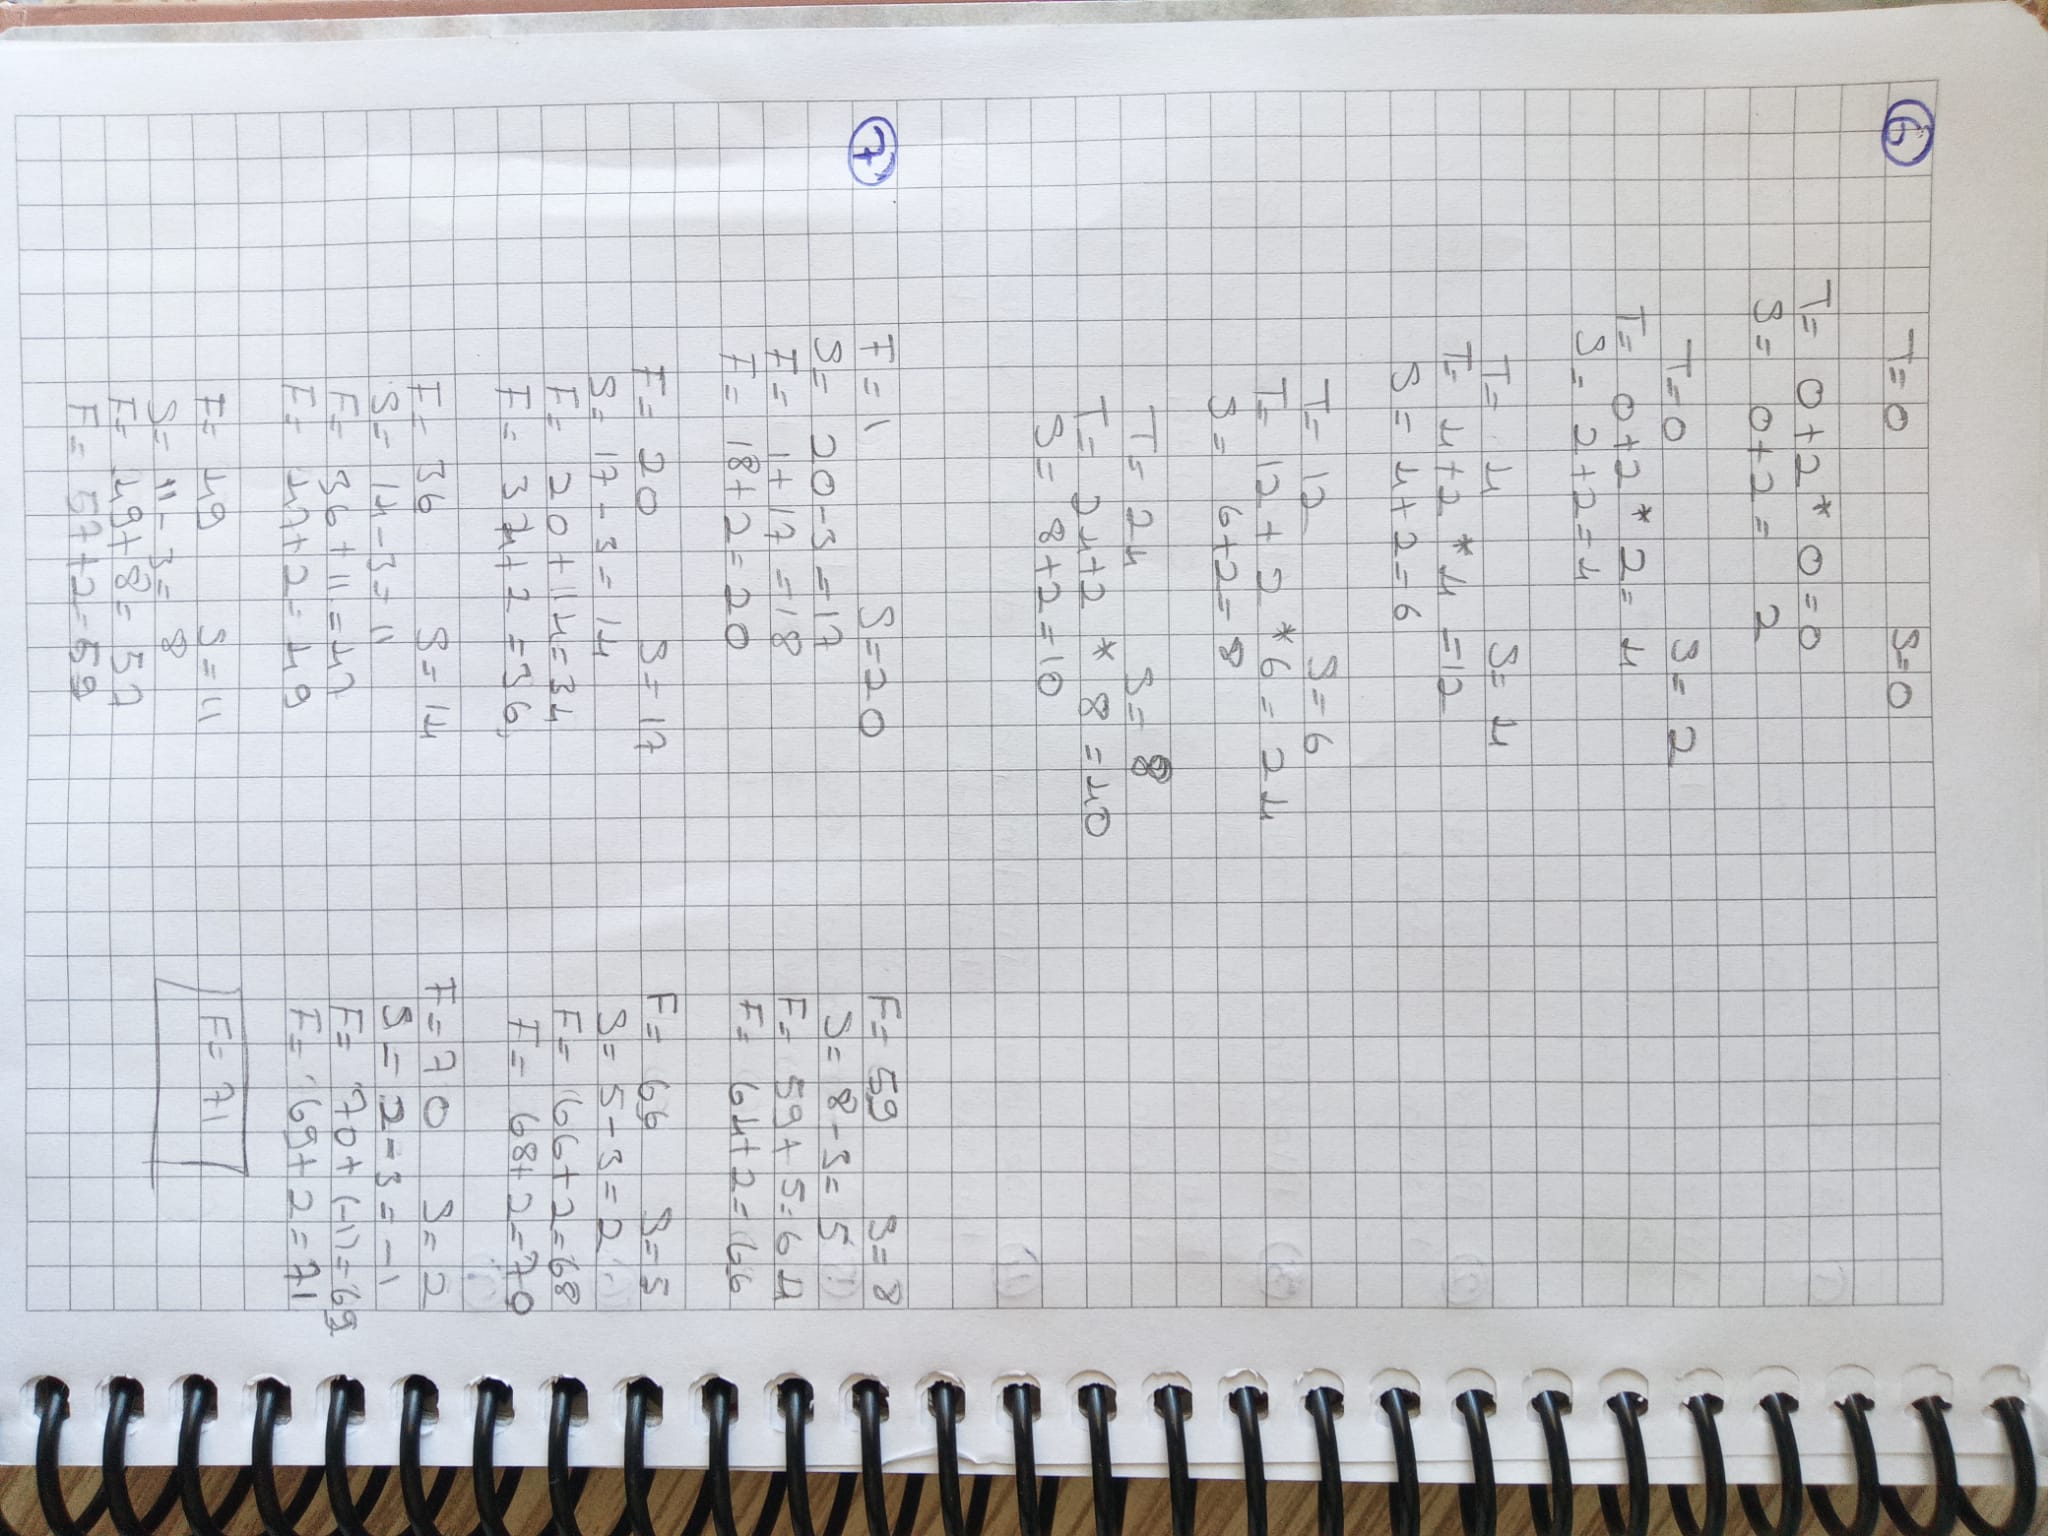 6
T= 0 S= 0
T= 0+2 * 0 = 0
S= 0+2= 2
T= 0 S= 2
T= 0+2 * 2= 4
S= 2+2=4
T= 4 S= 4
T= 4+2 * 4 =12
S= 4+2=6
T= 12 S= 6
T= 12 + 2 *6 = 24
S= 6+2= 8
T= 24 S= 8
T= 24+2 * 8 =40
S= 8+2=10
7
F=1 S=20
S= 20-3 =17
F= 1+17 =18
F= 18+2=20
F= 20 S=17
S= 17-3= 14
F= 20+14=34
F= 34+2 =36
F= 36 S= 14
S= 14-3= 11
F= 36+11=47
F= 47+2= 49
F= 49 S= 11
S= 11-3= 8
F= 49+8= 57
F= 57+2=59
F= 59 S= 8
S= 8-3= 5
F= 59+5=64
F= 64+2= 66
F= 66 S=5
S= 5-3=2
F= 66+2=68
F= 68+2=70
F=70 S= 2
S= 2-3=-1
F= 70+(-1)=69
F= 69+2=71
F= 71